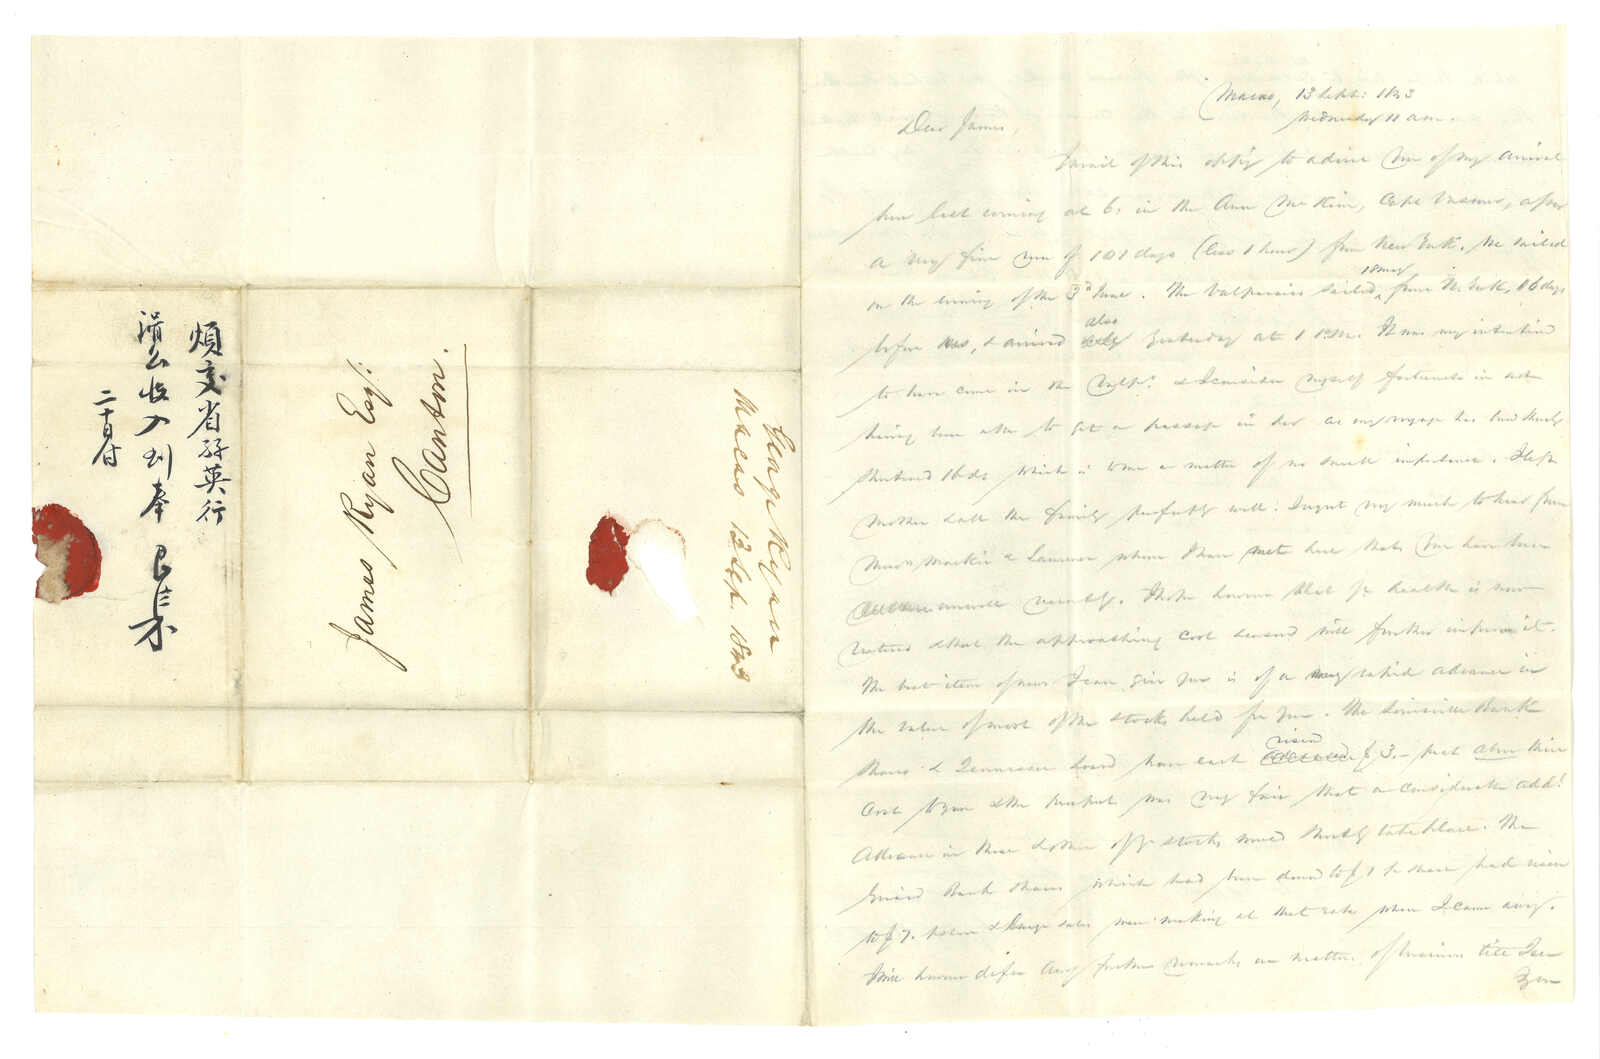 煩交省孖英行
涓公收入到奉 
二十日付
James Ryan Esq:
Canton.
George Ryan
Macao 13 Sep. 1843
Macao, 13 Sept: 1843
Wednesday 11 am.
Dear James,
I avail of this opp'y to advise you of my arrival
here last evening at 6. in the Ann McKim, Capt Vasmer, after
a very fine run of 101 days (less 1 hour) from New York. We sailed
on the evening of the 3d June. The Valparaiso sailed 18 May from N. York, 16 days
before us, & arrived also yesterday at 1 P.M. It was my intention
to have come in the Valpo. & I consider myself fortunate in not
having been able to get a passage in her as my voyage has been thereby
shortened 16 ds which is to me a matter of no small importance. I left
Mother & all the family perfectly well. I regret very much to hear from
Messrs & Lawrence whom I have met here that you have been
unwell recently. I hope however that yr health is now
restored & that the approaching cool season will further improve it.
The best item of news I can give you is of a very rapid advance in
the value of most of the stocks held for you. The Louisville Bank
shares & Tennessee bond have each risen $3.- above their
cost to you & the prospect was very fair that a considerable addl
advance in these & other of yr stocks would shortly take place. The
Girard Bank shares which had been down to $1 pr share had risen
to $7. & large sales were making at that rate when I came away.
I will however defer any further remarks on matters of business till I see
you